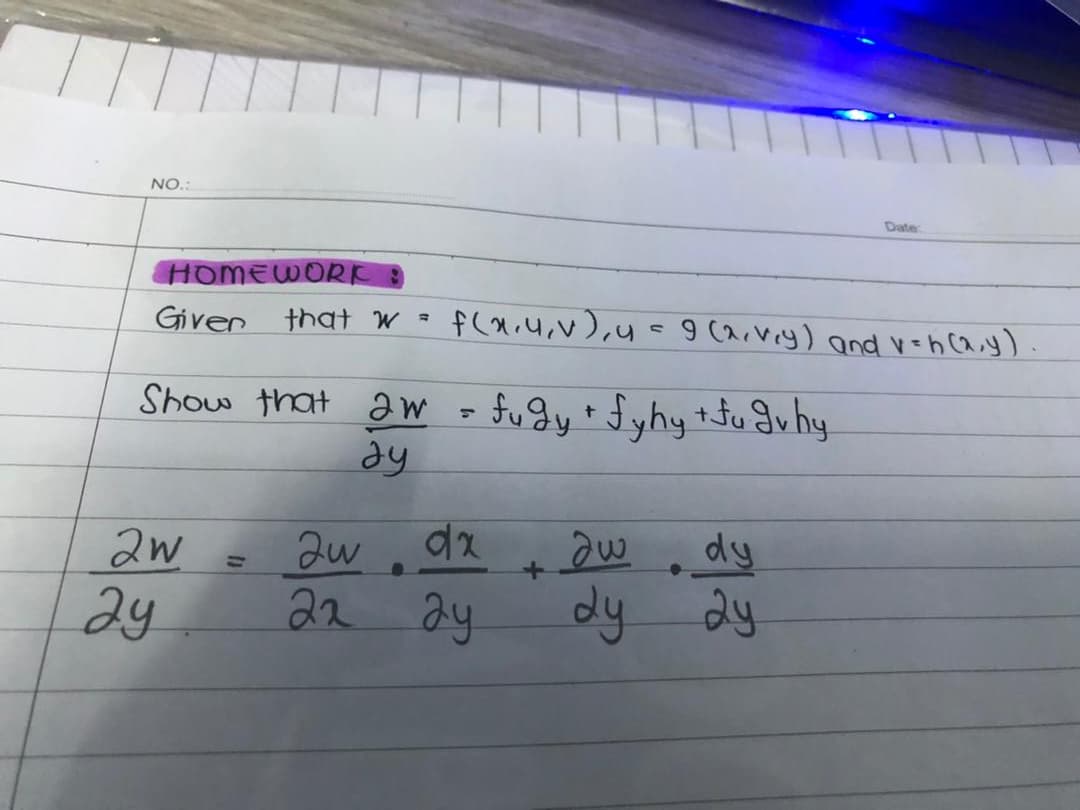 NO.:
Date:
HOMEWORK :
Given that w = f(x,u,v), u = g(x,v,y) and v=h(x,y).
Show that ∂w/∂y = fᵤgᵧ + fᵧhᵧ + fᵤgᵥhᵧ
∂w/∂y = ∂w/∂x · dx/∂y + ∂w/dy · dy/∂y